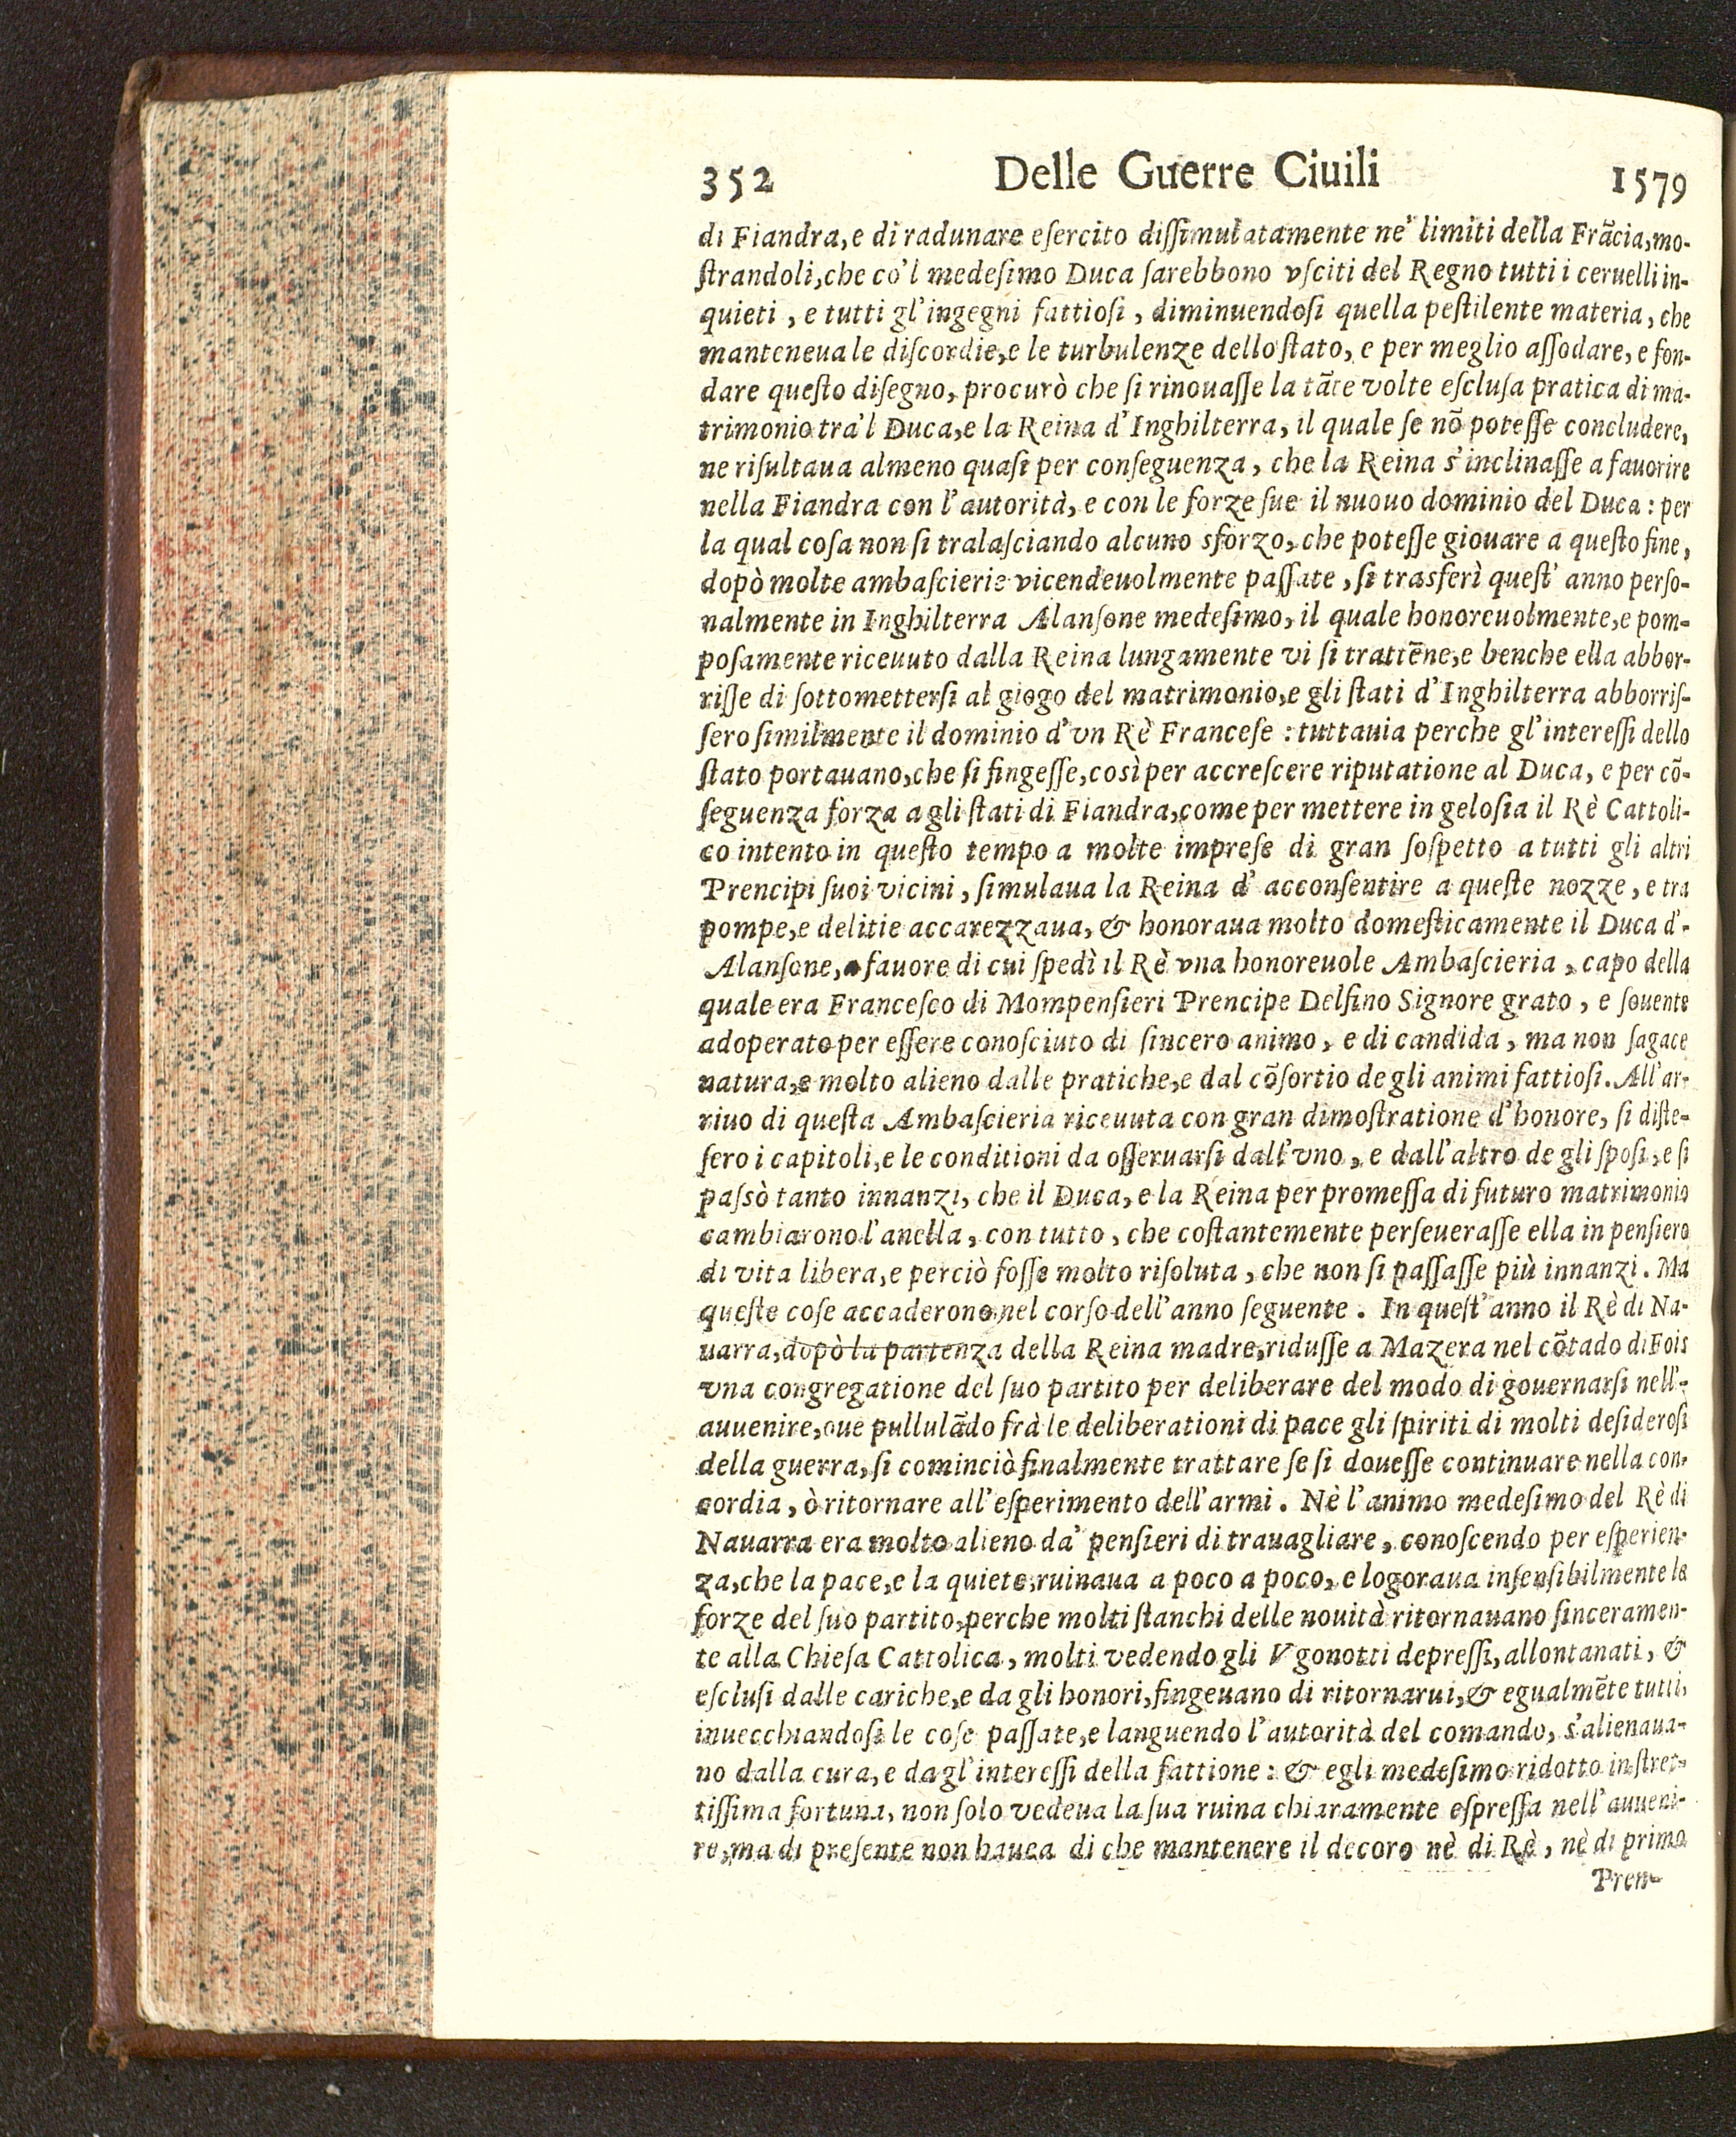 352 Delle Guerre Ciuili 1579
di Fiandra, e di radunare eſercito diſſimulatamente ne' limiti della Frãcia, mo-
ſtrandoli, che co'l medeſimo Duca ſarebbono vſciti del Regno tutti i ceruelli in-
quieti, e tutti gl'ingegni fattioſi, diminuendoſi quella peſtilente materia, che
manteneua le diſcordie, e le turbulenze dello ſtato, e per meglio aſſodare, e fon-
dare queſto diſegno, procurò che ſi rinouaſſe la tãte volte eſcluſa pratica di ma-
trimonio tra'l Duca, e la Reina d'Inghilterra, il quale ſe nõ poteſſe concludere,
ne riſultaua almeno quaſi per conſeguenza, che la Reina s'inclinaſſe a fauorire
nella Fiandra con l'autorità, e con le forze ſue il nuouo dominio del Duca: per
la qual coſa non ſi tralaſciando alcuno sforzo, che poteſſe giouare a queſto fine,
dopò molte ambaſcierie vicendeuolmente paſſate, ſi trasferì queſt' anno perſo-
nalmente in Inghilterra Alanſone medeſimo, il quale honoreuolmente, e pom-
poſamente riceuuto dalla Reina lungamente vi ſi trattẽne, e benche ella abbor-
riſſe di ſottometterſi al giogo del matrimonio, e gli ſtati d'Inghilterra abborriſ-
ſero ſimilmente il dominio d'vn Rè Franceſe: tuttauia perche gl'intereſſi dello
ſtato portauano, che ſi fingeſſe, così per accreſcere riputatione al Duca, e per cõ-
ſeguenza forza a gli ſtati di Fiandra, come per mettere in geloſia il Rè Cattoli-
co intento in queſto tempo a molte impreſe di gran ſoſpetto a tutti gli altri
Prencipi ſuoi vicini, ſimulaua la Reina d' acconſentire a queſte nozze, e tra
pompe, e delitie accarezzaua, & honoraua molto domeſticamente il Duca d'-
Alanſone, a fauore di cui ſpedì il Rè vna honoreuole Ambaſcieria, capo della
quale era Franceſco di Mompenſieri Prencipe Delfino Signore grato, e ſouente
adoperato per eſſere conoſciuto di ſincero animo, e di candida, ma non ſagace
natura, e molto alieno dalle pratiche, e dal cõſortio de gli animi fattioſi. All'ar-
riuo di queſta Ambaſcieria riceuuta con gran dimoſtratione d'honore, ſi diſte-
ſero i capitoli, e le conditioni da oſſeruarſi dall'vno, e dall'altro de gli ſpoſi, e ſi
paſsò tanto innanzi, che il Duca, e la Reina per promeſſa di futuro matrimonio
cambiarono l'anella, con tutto, che coſtantemente perſeueraſſe ella in penſiero
di vita libera, e perciò foſſe molto riſoluta, che non ſi paſſaſſe più innanzi. Ma
queſte coſe accaderono nel corſo dell'anno ſeguente. In queſt'anno il Rè di Na-
uarra, dopò la partenza della Reina madre, riduſſe a Mazera nel cõtado di Fois
vna congregatione del ſuo partito per deliberare del modo di gouernarſi nell'-
auuenire, oue pullulãdo frà le deliberationi di pace gli ſpiriti di molti deſideroſi
della guerra, ſi cominciò finalmente trattare ſe ſi doueſſe continuare nella con-
cordia, ò ritornare all'eſperimento dell'armi. Nè l'animo medeſimo del Rè di
Nauarra era molto alieno da' penſieri di trauagliare, conoſcendo per eſperien-
za, che la pace, e la quiete, ruinaua a poco a poco, e logoraua inſenſibilmente le
forze del ſuo partito, perche molti ſtanchi delle nouità ritornauano ſinceramen-
te alla Chieſa Cattolica, molti vedendo gli Vgonotti depreſſi, allontanati, &
eſcluſi dalle cariche, e da gli honori, fingeuano di ritornarui, & egualmẽte tutti,
inuecchiandoſi le coſe paſſate, e languendo l'autorità del comando, s'alienaua-
no dalla cura, e da gl'intereſſi della fattione: & egli medeſimo ridotto in ſtret-
tiſſima fortuna, non ſolo vedeua la ſua ruina chiaramente eſpreſſa nell'auueni-
re, ma di preſente non hauea di che mantenere il decoro nè di Rè, nè di primo
Pren-